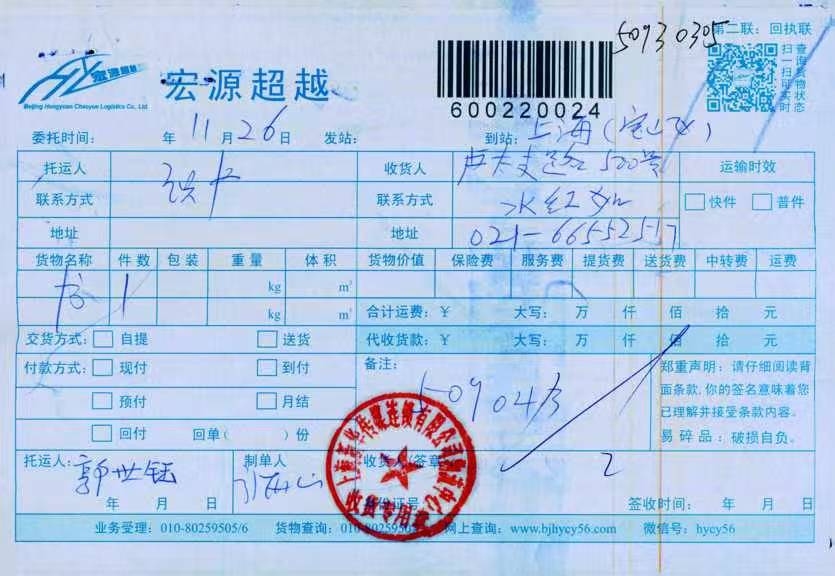 50930305
第二联：回执联
宏源超越
宏源超越
Beijing Hongyuan Chaoyue Logistics Co., Ltd.
600220024
扫一扫即可
查询货物实时状态
委托时间： 年 11 月 26 日 发站： 到站：上海(宝山
托运人 收货人 500号 运输时效
联系方式 联系方式 红 快件 普件
地址 地址 021-66552517
货物名称 件数 包装 重量 体积 货物价值 保险费 服务费 提货费 送货费 中转费 运费
1 kg m³
kg m³ 合计运费：￥ 大写： 万 仟 佰 拾 元
交货方式： 自提 送货 代收货款：￥ 大写： 万 仟 佰 拾 元
付款方式： 现付 到付 备注：
预付 月结 5090413
回付 回单( )份
郑重声明：请仔细阅读背
面条款，你的签名意味着您
已理解并接受条款内容。
易碎品：破损自负。
托运人：郭世钰 制单人 收货人(签章) 2
年 月 日 身份证号： 签收时间： 年 月 日
收货专用章
业务受理：010-80259505/6 货物查询：010-80259505 网上查询：www.bjhycy56.com 微信号：hycy56